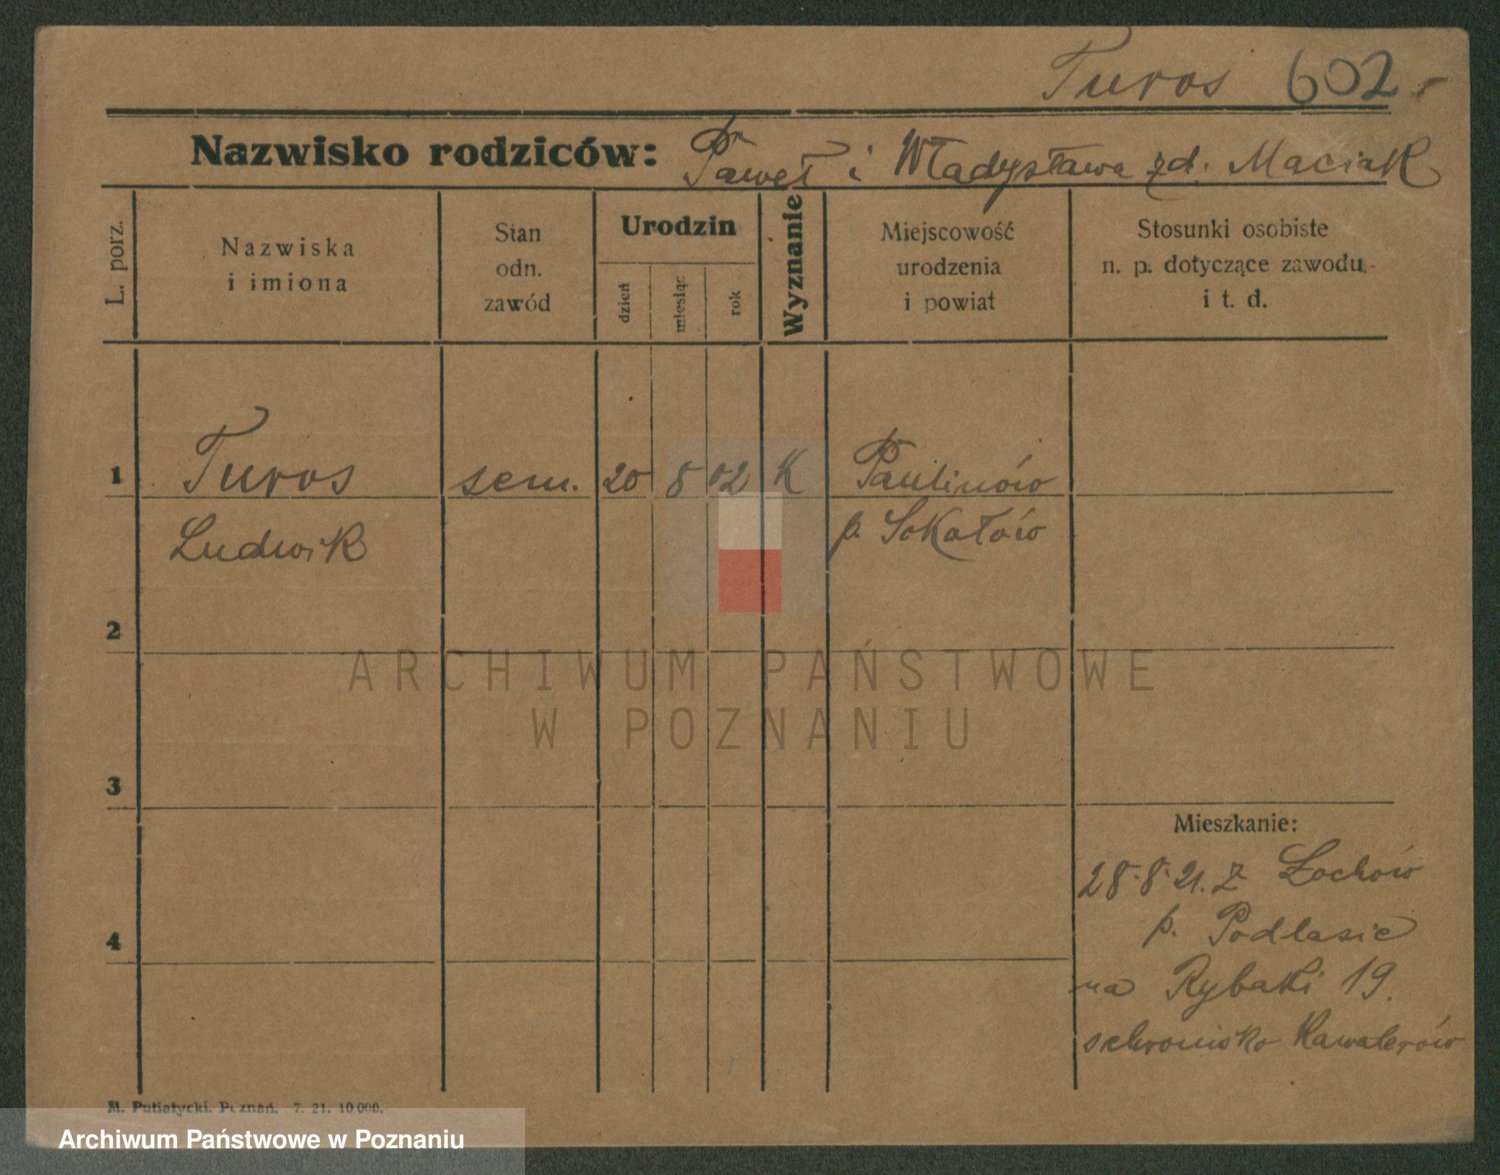 Turos 602
Nazwisko rodziców: Paweł i Władysława zd. Maciak
L. porz.
Nazwiska
i imiona
Stan
odn.
zawód
Urodzin
dzień
miesiąc
rok
Wyznanie
Miejscowość
urodzenia
i powiat
Stosunki osobiste
n. p. dotyczące zawodu
i t. d.
1 Turos sem. 20 8 02 K Paulinów
Ludwik p. Sokołów
2
3
4
Mieszkanie:
28.8.21. z Łochów
p. Podlasie
na Rybaki 19.
schronisko Kawalerów
M. Putiatycki. Poznań. 7. 21. 10 000.
ARCHIWUM PAŃSTWOWE
W POZNANIU
Archiwum Państwowe w Poznaniu